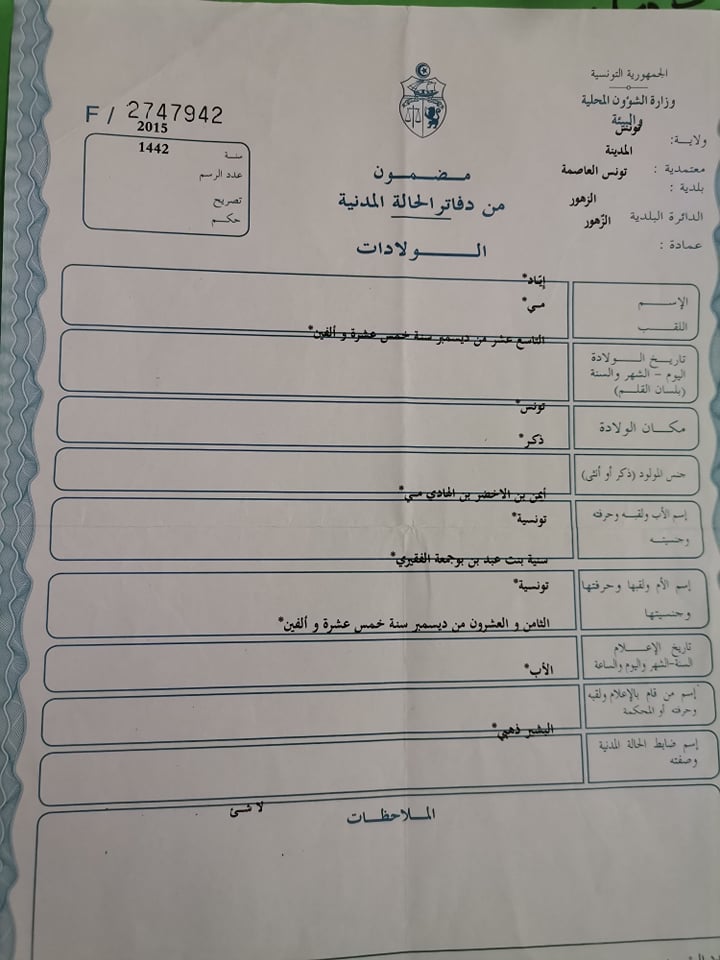 الجمهورية التونسية
وزارة الشؤون المحلية
والبيئة
ولاية: تونس
معتمدية : المدينة
بلدية : تونس العاصمة
الدائرة البلدية الزهور
عمادة : الزّهور
F / 2747942
سنة 2015
عدد الرسم 1442
تصريح
حكم
مضمون
من دفاتر الحالة المدنية
الولادات
الإسم إيّاد*
اللقب مي*
تاريخ الولادة
اليوم - الشهر والسنة
(بلسان القلم)
التاسع عشر من ديسمبر سنة خمس عشرة و ألفين*
مكان الولادة
تونس*
جنس المولود (ذكر أو أنثى)
ذكر*
إسم الأب ولقبه وحرفته
وجنسيته
أيمن بن الاخضر بن الهادي مي*
تونسية*
إسم الأم ولقبها وحرفتها
وجنسيتها
سنية بنت عبد بن بوجمعة الفقيري*
تونسية*
تاريخ الإعلام
السنة-الشهر واليوم والساعة
الثامن و العشرون من ديسمبر سنة خمس عشرة و ألفين*
إسم من قام بالإعلام ولقبه
وحرفته أو المحكمة
الأب*
إسم ضابط الحالة المدنية
وصفته
البشير ذهبي*
الملاحظات
لا شئ